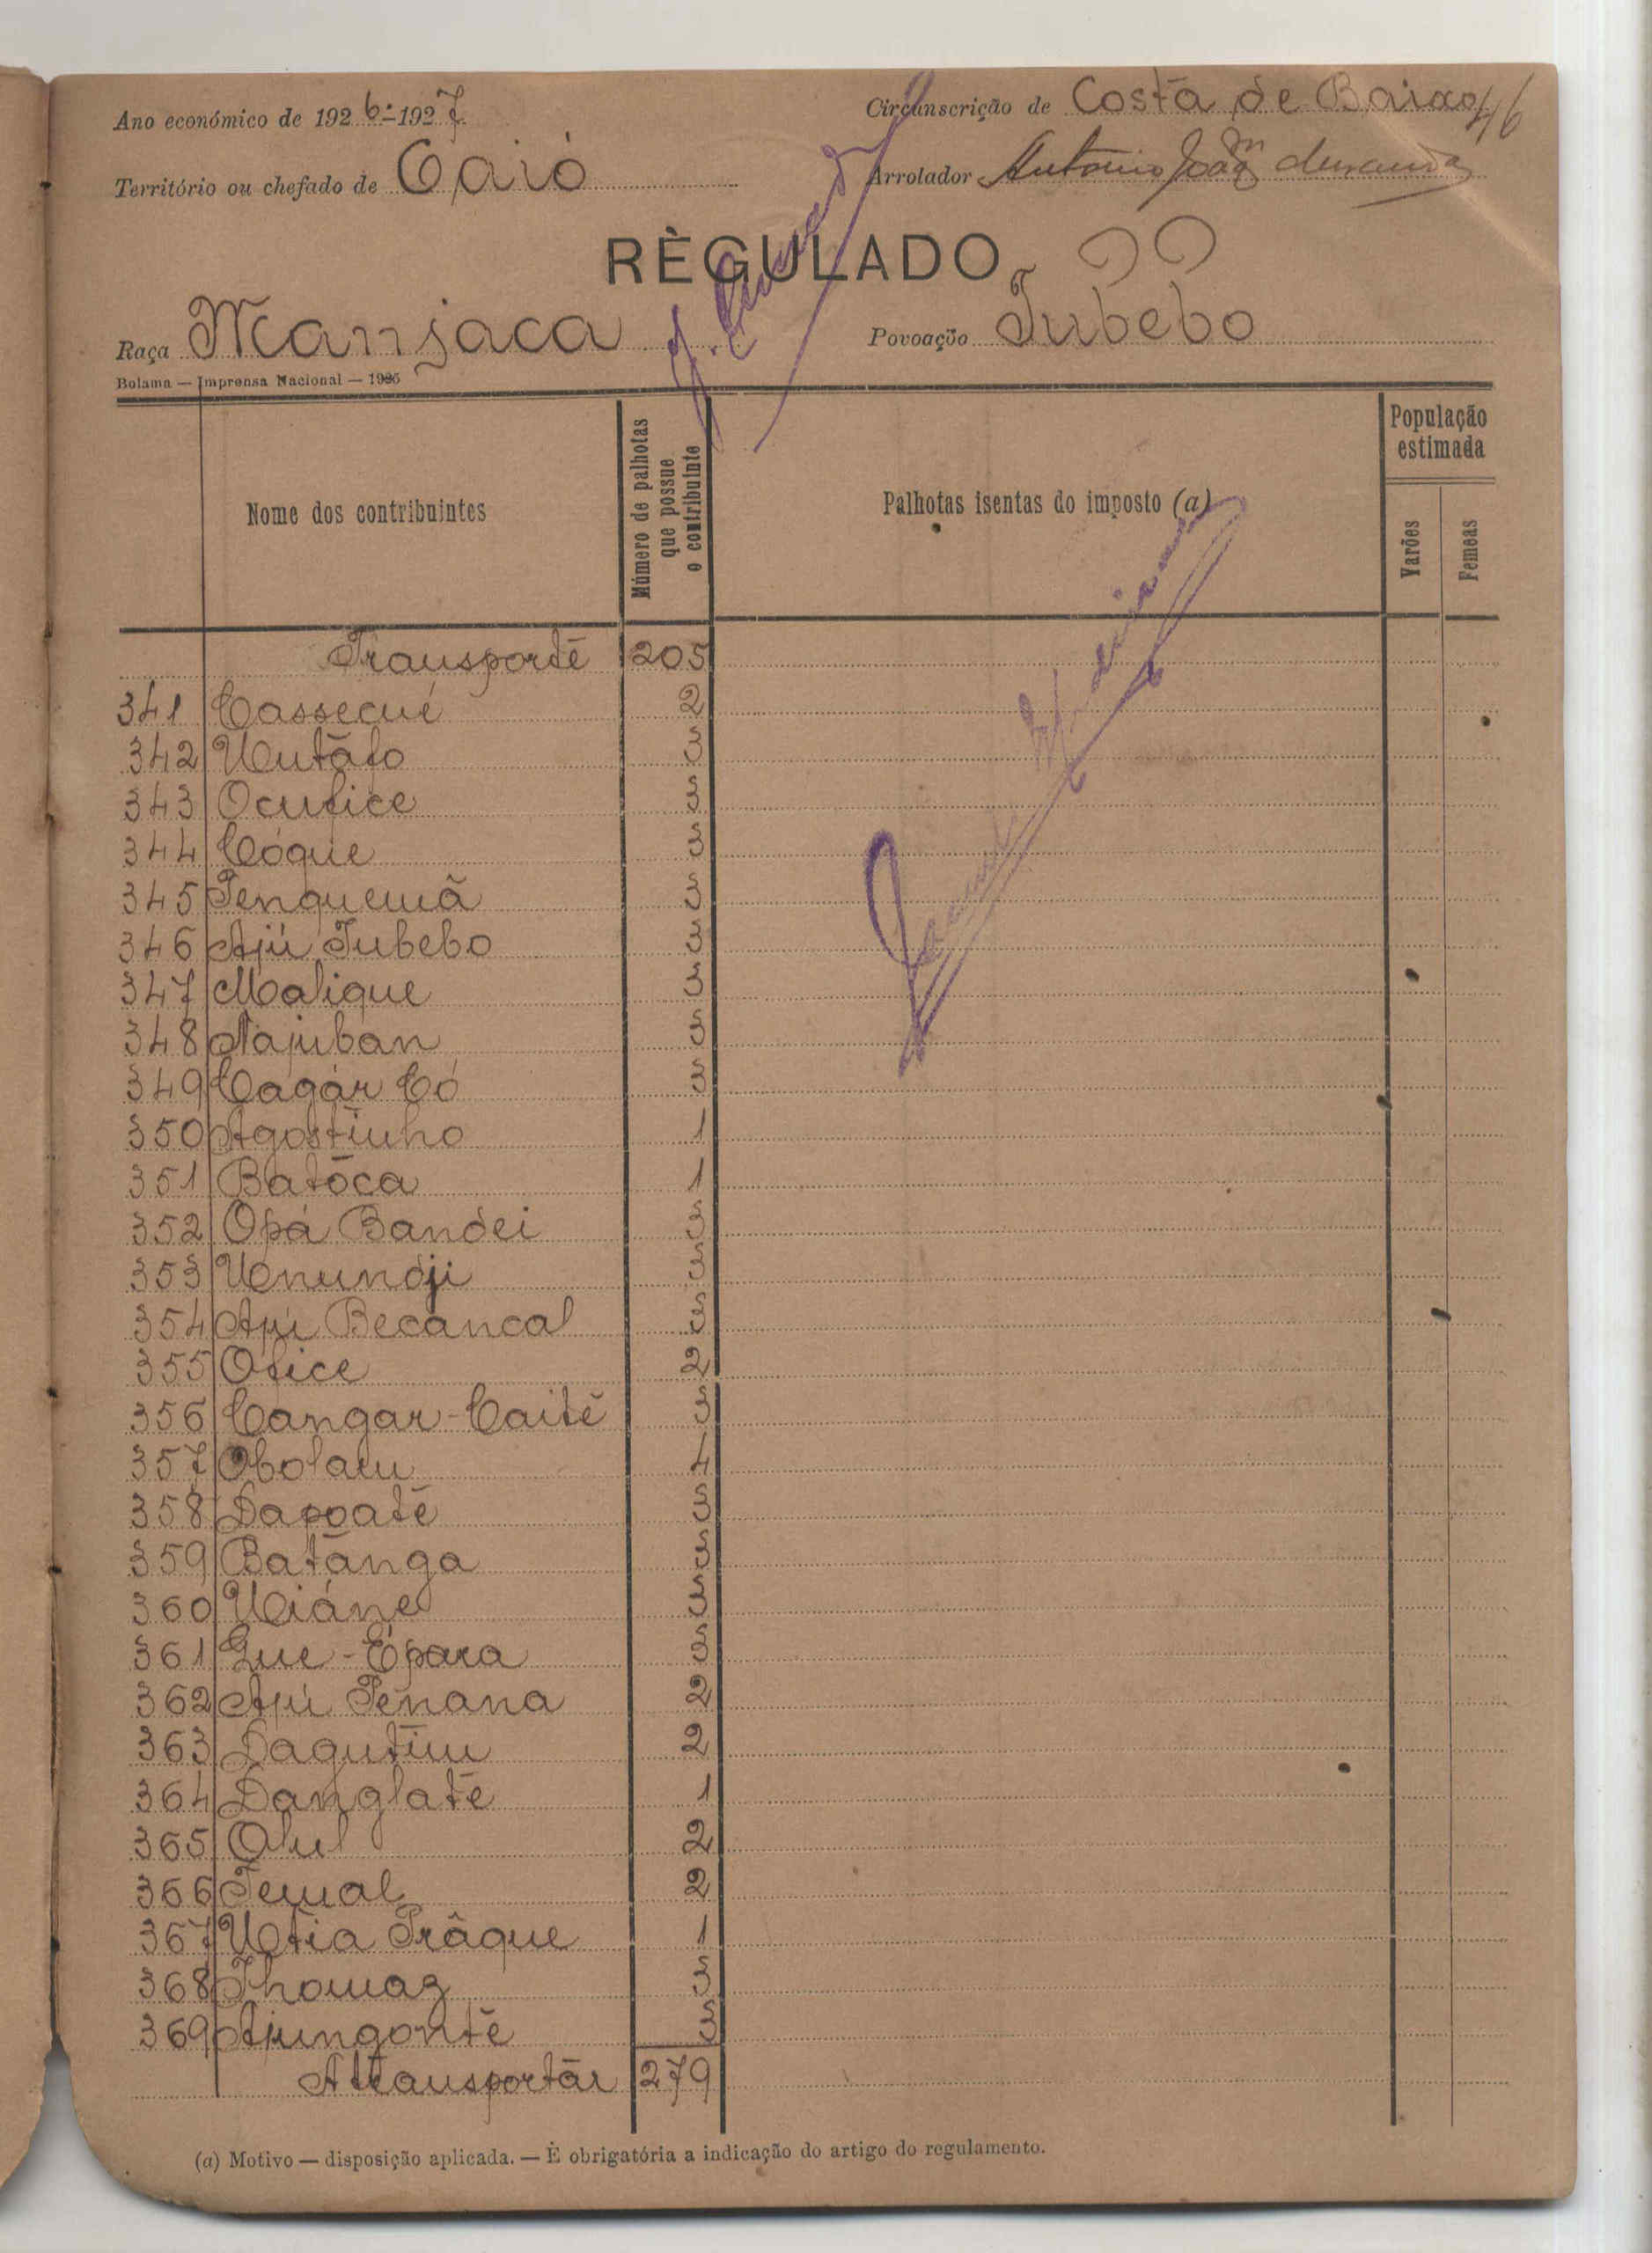 Ano económico de 1926-1927 Circunscrição de Costa de Baixo 46
Território ou chefado de Caió Arrolador António Joaqm
RÈGULADO
Raça Manjaca Povoação Tubebo
Bolama — Imprensa Nacional — 1925
Nome dos contribuintes
Número de palhotas que possue o contribuinte
Palhotas isentas do imposto (a)
População estimada
Varões
Femeas
Transporte 205
341 Cassecué 2
342 Uutáfo 3
343 Ocufice 3
344 Cóque 3
345 Penquemã 3
346 Ajú Tubebo 3
347 Malique 3
348 Najuban 3
349 Cagár Có 3
350 Agostinho 1
351 Batóca 1
352 Opá Bandei 3
353 Unundji 3
354 Apú Becancal 3
355 Ofice 2
356 Cangar-Caité 3
357 Obolam 4
358 Dapoaté 3
359 Batanga 3
360 Uiáne 3
361 Que-Épara 3
362 Apú Penana 2
363 Dagutim 2
364 Danglaté 1
365 2
366 Temal 2
367 Utia Prâque 1
368 Thomaz 3
369 Apungonté 3
A transportar 279
(a) Motivo — disposição aplicada. — È obrigatória a indicação do artigo do regulamento.